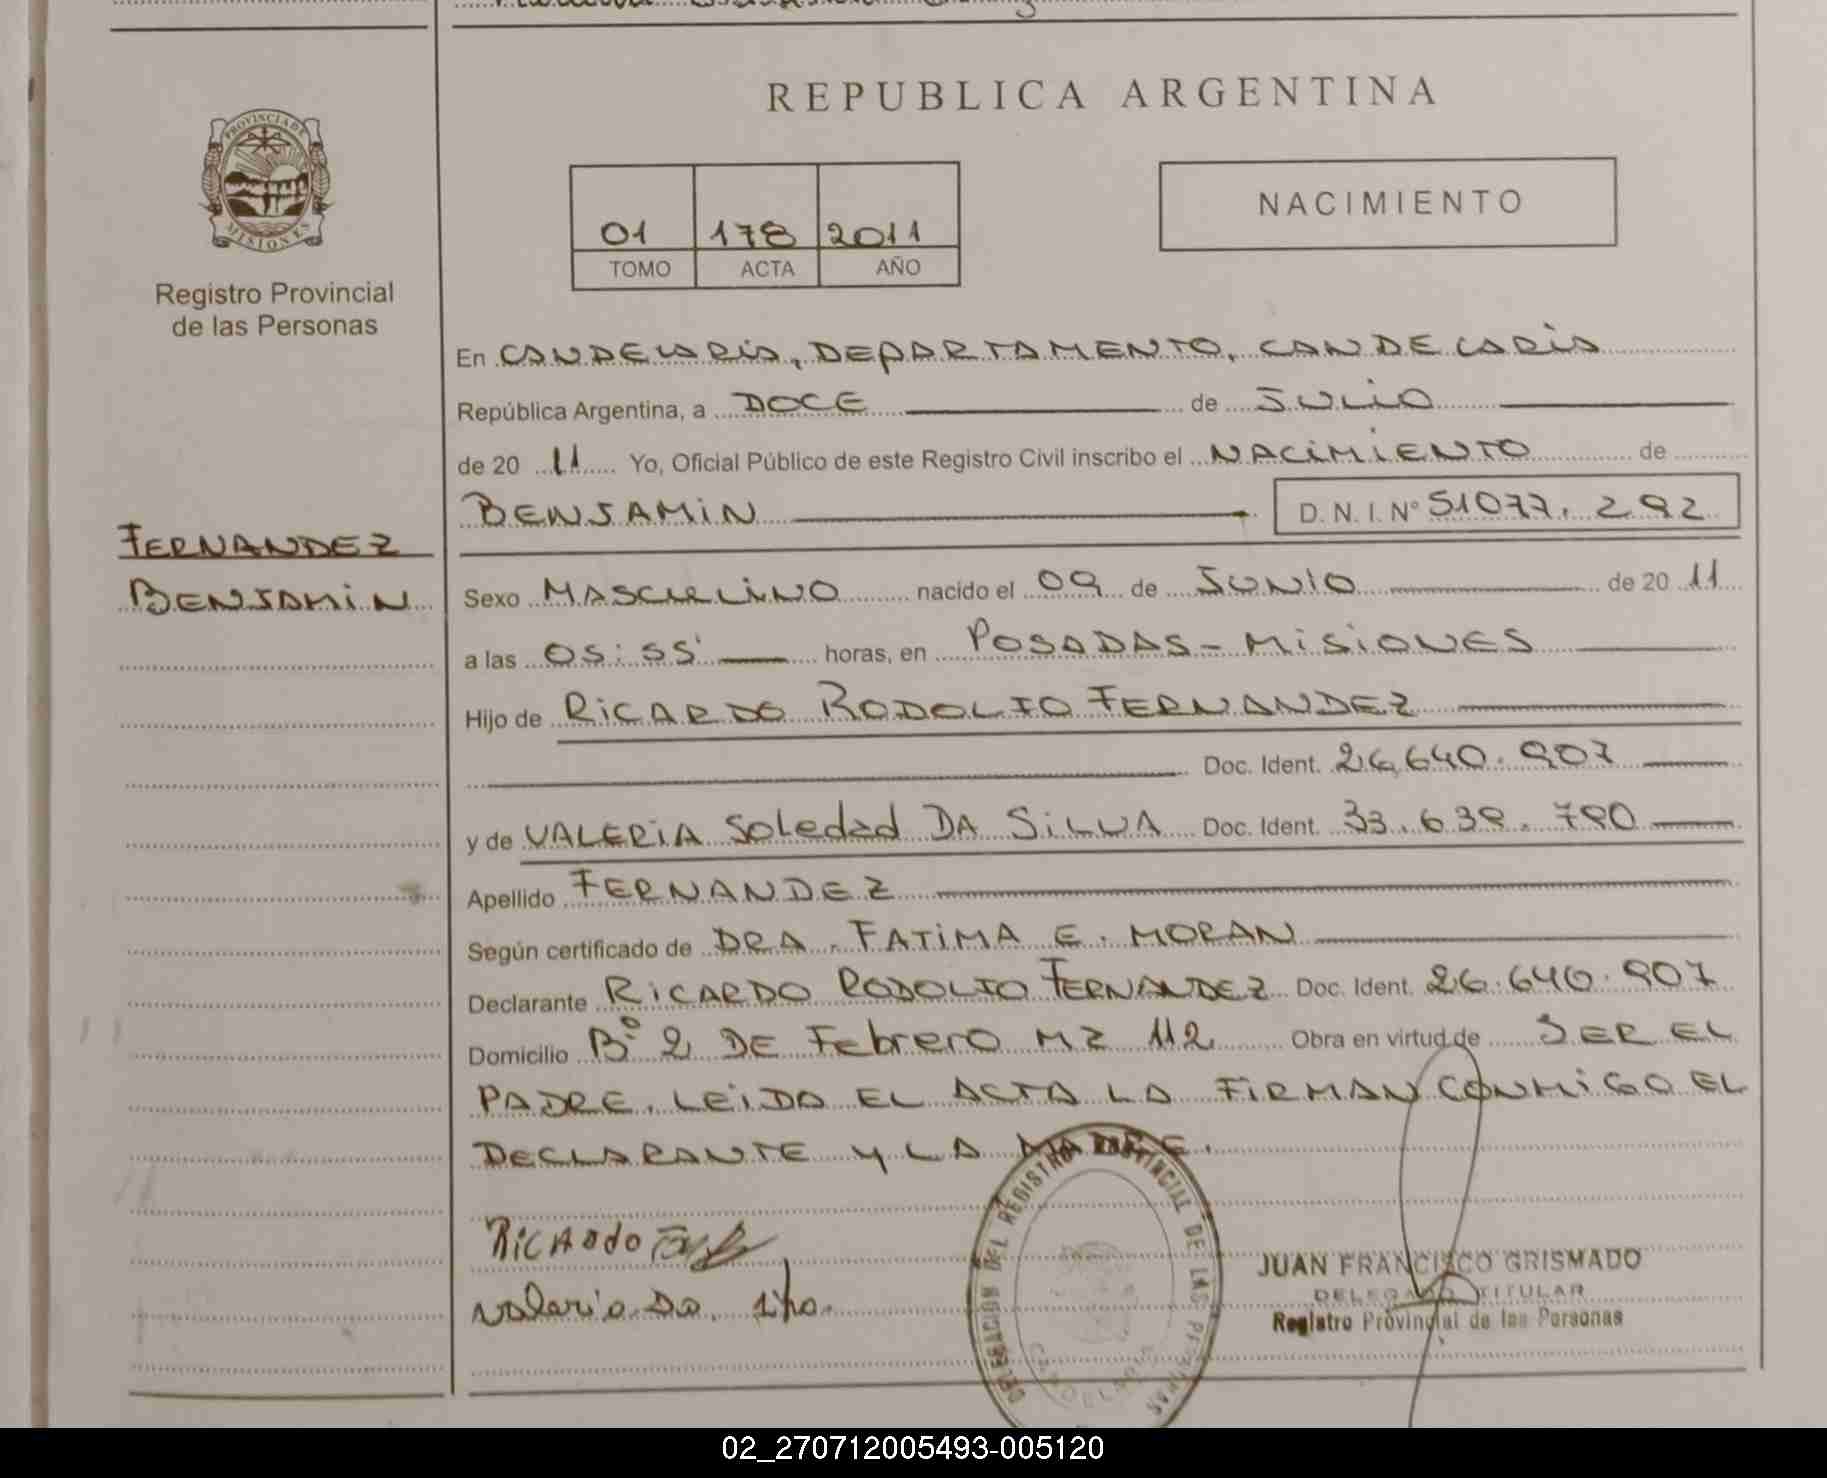 REPUBLICA ARGENTINA
PROVINCIA DE
MISIONES
Registro Provincial
de las Personas
01 178 2011
TOMO ACTA AÑO
NACIMIENTO
En CANDELARIA, DEPARTAMENTO, CANDELARIA
República Argentina, a DOCE de JULIO
de 20 11 Yo, Oficial Público de este Registro Civil inscribo el NACIMIENTO de
BENJAMIN D. N. I. N° 51077.292
FERNANDEZ
BENJAMIN
Sexo MASCULINO nacido el 09 de JUNIO de 20 11
a las 05:55' horas, en POSADAS - MISIONES
Hijo de RICARDO RODOLFO FERNANDEZ
Doc. Ident. 26.640.907
y de VALERIA Soledad DA SILVA Doc. Ident. 33.639.790
Apellido FERNANDEZ
Según certificado de DRA. FATIMA E. MORAN
Declarante RICARDO RODOLFO FERNANDEZ Doc. Ident. 26.640.907
Domicilio B° 2 DE Febrero MZ 112 Obra en virtud de SER EL
PADRE. LEIDO EL ACTA LA FIRMAN CONMIGO EL
DECLARANTE Y LA MADRE.
RICARDO
Valeria Da
DELEGACION DEL REGISTRO PROVINCIAL DE LAS PERSONAS
CANDELARIA
JUAN FRANCISCO GRISMADO
DELEGADO TITULAR
Registro Provincial de las Personas
02_270712005493-005120